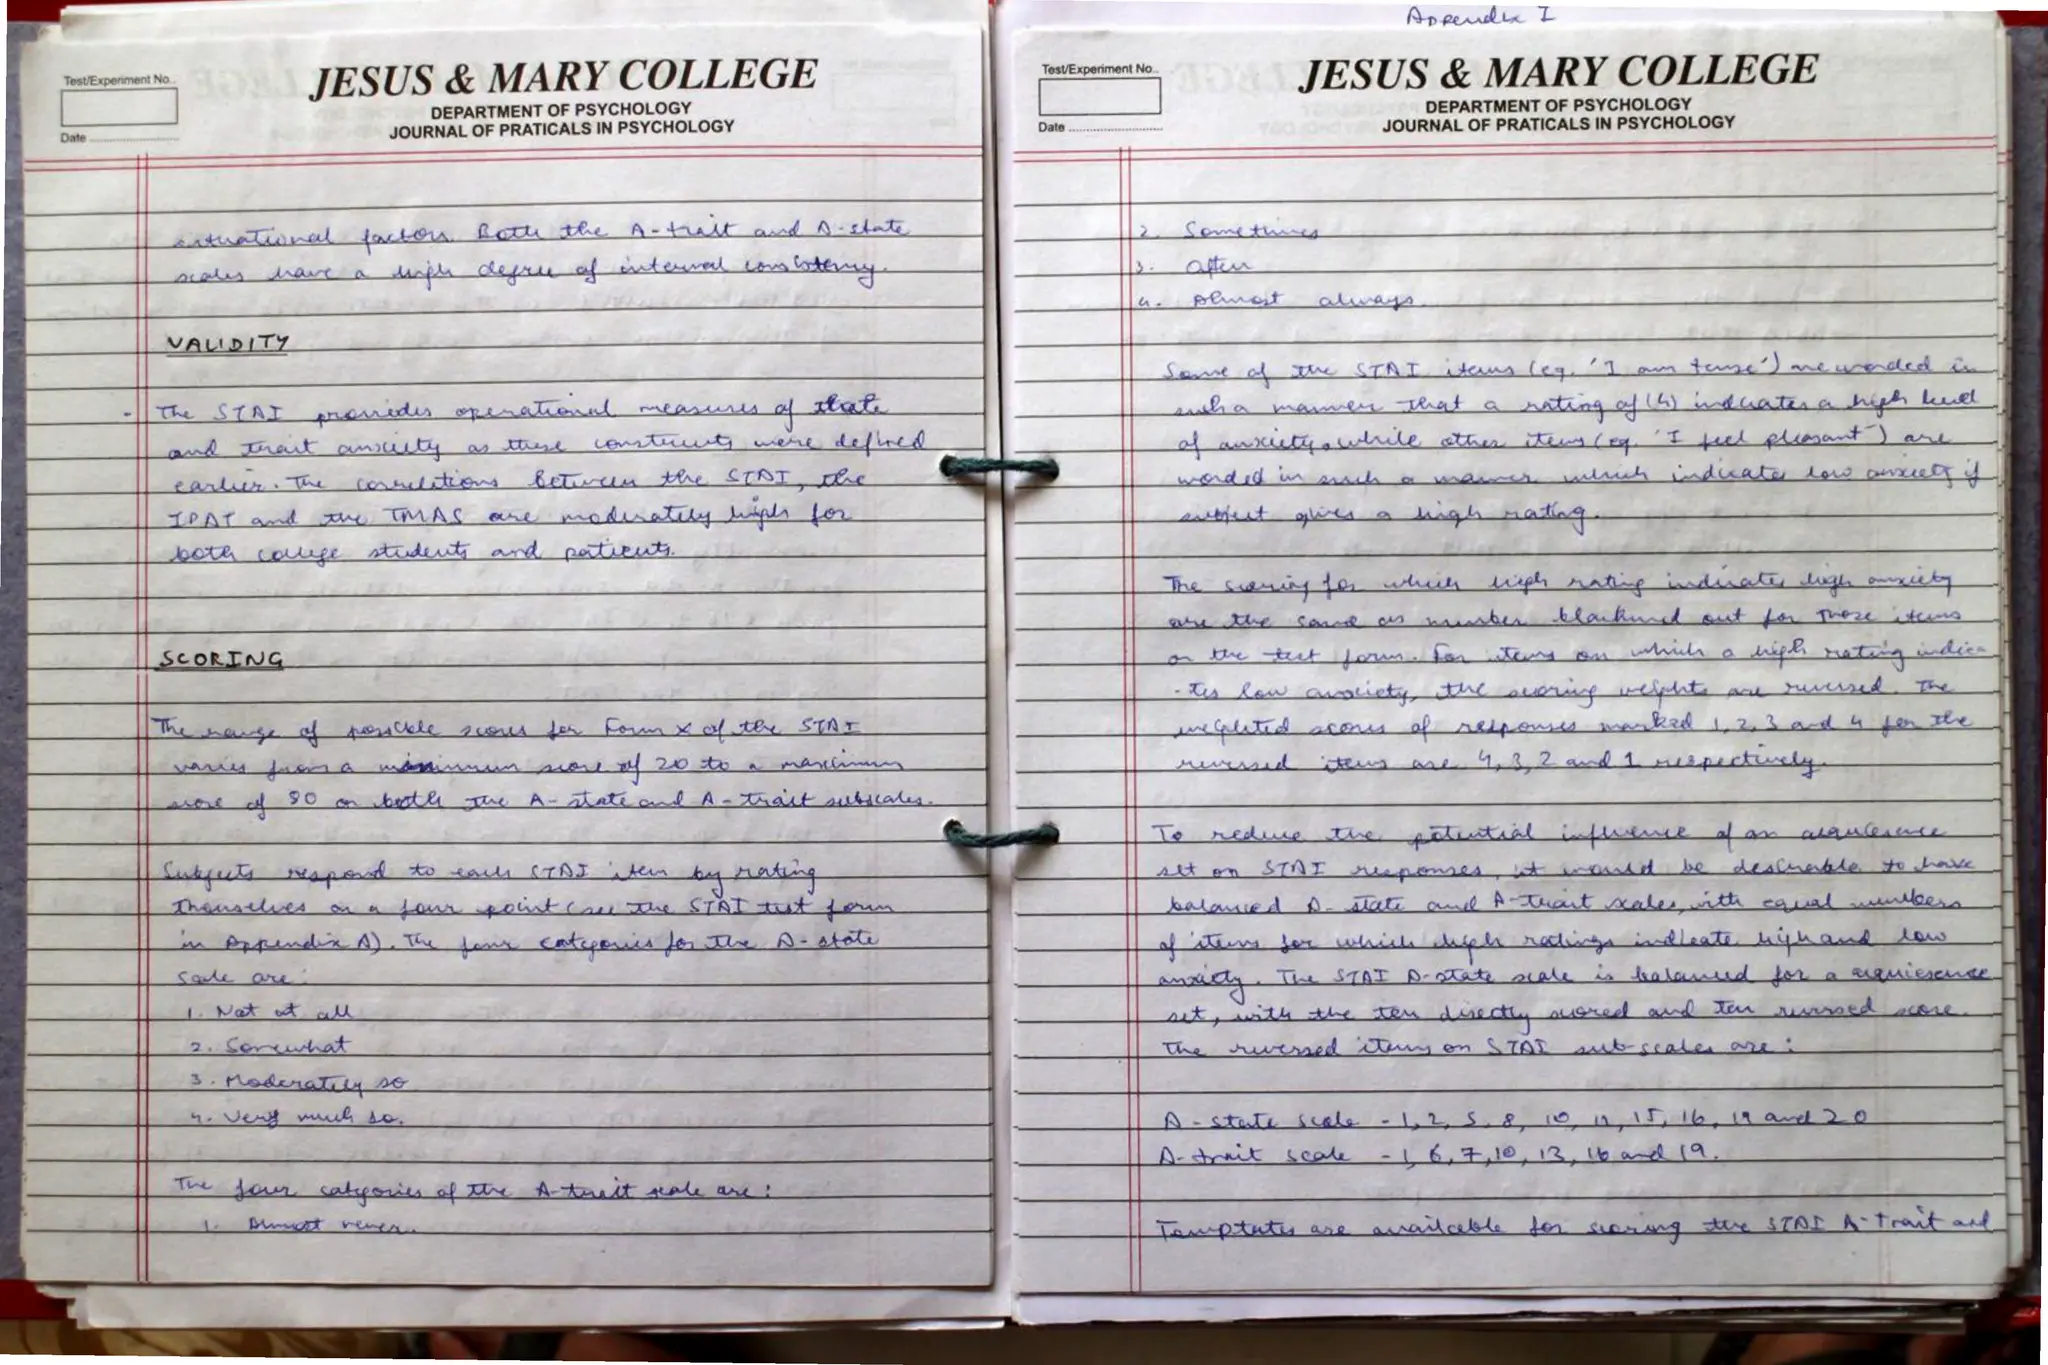 Test/Experiment No..
JESUS & MARY COLLEGE
DEPARTMENT OF PSYCHOLOGY
JOURNAL OF PRATICALS IN PSYCHOLOGY
Date
situational factors. Both the A-trait and A-state
scales have a high degree of internal consistency.
VALIDITY
- The STAI provides operational measures of state
and trait anxiety as these constructs were defined
earlier. The correlations between the STAI, the
IPAT and the TMAS are moderately high for
both college students and patients.
SCORING
The range of possible scores for Form X of the STAI
varies from a minimum score of 20 to a maximum
score of 80 on both the A-state and A-trait subscales.
Subjects respond to each STAI item by rating
themselves on a four point (see the STAI test form
in Appendix A). The four categories for the A-state
scale are:
1. Not at all
2. Somewhat
3. Moderately so
4. Very much so.
The four categories of the A-trait scale are:
1. Almost never.
Appendix I
Test/Experiment No..
JESUS & MARY COLLEGE
DEPARTMENT OF PSYCHOLOGY
JOURNAL OF PRATICALS IN PSYCHOLOGY
Date
2. Sometimes
3. Often
4. Almost always.
Some of the STAI items (eg. 'I am tense') are worded in
such a manner that a rating of (4) indicates a high level
of anxiety, while other items (eg. 'I feel pleasant') are
worded in such a manner which indicates low anxiety if
subject gives a high rating.
The scoring for which high rating indicates high anxiety
are the same as number blackened out for those items
on the test form. For items on which a high rating indica-
-tes low anxiety, the scoring weights are reversed. The
weighted scores of responses marked 1, 2, 3 and 4 for the
reversed items are 4, 3, 2 and 1 respectively.
To reduce the potential influence of an acquiescence
set on STAI responses, it would be desirable to have
balanced A-state and A-trait scales, with equal numbers
of items for which high ratings indicate high and low
anxiety. The STAI A-state scale is balanced for a acquiescence
set, with the ten directly scored and ten reversed score.
The reversed items on STAI sub-scales are:
A-state scale - 1, 2, 5, 8, 10, 11, 15, 16, 19 and 20
A-trait scale - 1, 6, 7, 10, 13, 16 and 19.
Templates are available for scoring the STAI A-Trait and